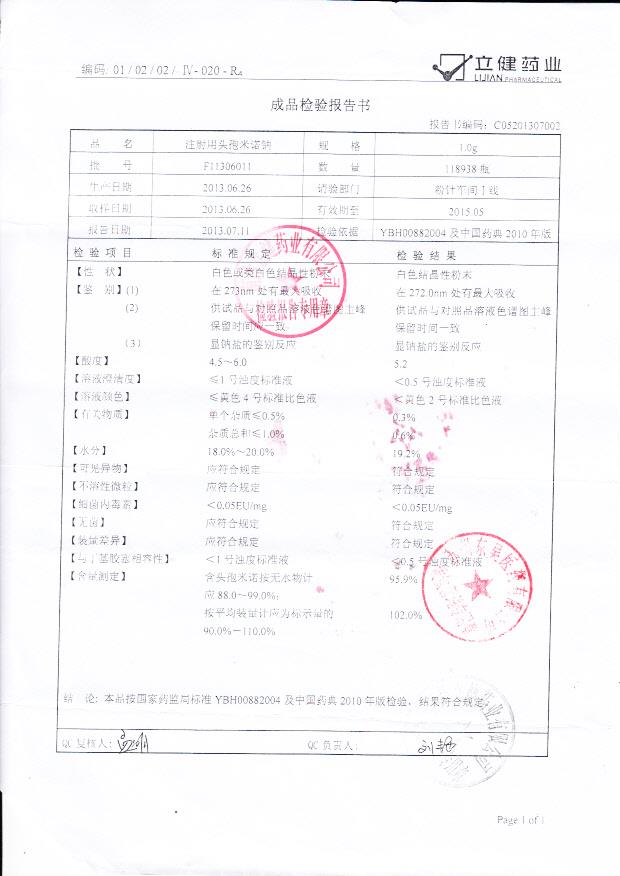 编码: 01 / 02 / 02 / Ⅳ - 020 - R4
立健药业
LIJIAN PHARMACEUTICAL
成品检验报告书
报告书编码: C05201307002
品 名 注射用头孢米诺钠 规 格 1.0g
批 号 F11306011 数 量 118938 瓶
生产日期 2013.06.26 请验部门 粉针车间Ⅰ线
取样日期 2013.06.26 有效期至 2015.05
报告日期 2013.07.11 检验依据 YBH00882004 及中国药典 2010 年版
检 验 项 目 标 准 规 定 检 验 结 果
【性 状】 白色或类白色结晶性粉末 白色结晶性粉末
【鉴 别】(1) 在 273nm 处有最大吸收 在 272.0nm 处有最大吸收
(2) 供试品与对照品溶液色谱图主峰 供试品与对照品溶液色谱图主峰
保留时间应一致 保留时间一致
(3) 显钠盐的鉴别反应 显钠盐的鉴别反应
【酸度】 4.5~6.0 5.2
【溶液澄清度】 ≤1 号浊度标准液 <0.5 号浊度标准液
【溶液颜色】 ≤黄色 4 号标准比色液 <黄色 2 号标准比色液
【有关物质】 单个杂质≤0.5% 0.3%
杂质总和≤1.0% 0.6%
【水分】 18.0%~20.0% 19.2%
【可见异物】 应符合规定 符合规定
【不溶性微粒】 应符合规定 符合规定
【细菌内毒素】 <0.05EU/mg <0.05EU/mg
【无菌】 应符合规定 符合规定
【装量差异】 应符合规定 符合规定
【与丁基胶塞相容性】 <1 号浊度标准液 ≤0.5 号浊度标准液
【含量测定】 含头孢米诺按无水物计 95.9%
应 88.0~99.0%;
按平均装量计应为标示量的 102.0%
90.0%－110.0%
药业有限公司
检验报告专用章
结 论: 本品按国家药监局标准 YBH00882004 及中国药典 2010 年版检验、结果符合规定。
QC 复核人: QC 负责人:
Page 1 of 1